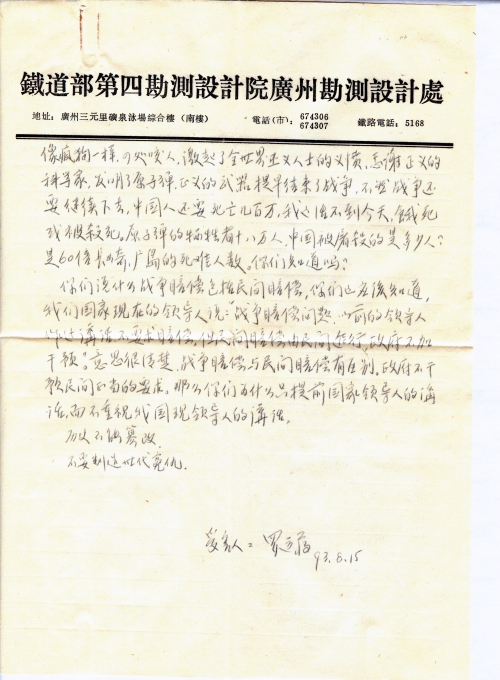 鐵道部第四勘測設計院廣州勘測設計處
地址：廣州三元里礦泉泳場綜合樓（南樓） 電話（市）：674306 674307 鐵路電話：5168
像疯狗一样，到处咬人，激起了全世界正义人士的义愤，感谢正义的
科学家，发明了原子弹，正义的武器，提早结束了战争，不然战争还
要继续下去，中国人还要死亡几百万，我也活不到今天，饿死
或被杀死。原子弹的牺牲者十八万人，中国被屠杀的是多少人？
是60倍长崎、广岛的死难人数。你们知道吗？
你们说什么战争赔偿包括民间赔偿，你们也应该知道，
我们国家现在的领导人说："战争赔偿问题，以前的领导人
讲话不要求赔偿，但民间赔偿由民间进行，政府不加
干预。"意思很清楚，战争赔偿与民间赔偿有区别，政府不干
预民间正当的要求。那么你们为什么只提前国家领导人的讲
话，而不重视我国现领导人的讲话。
历史不能篡改。
不要制造世代冤仇。
受害人： 罗
93.8.15